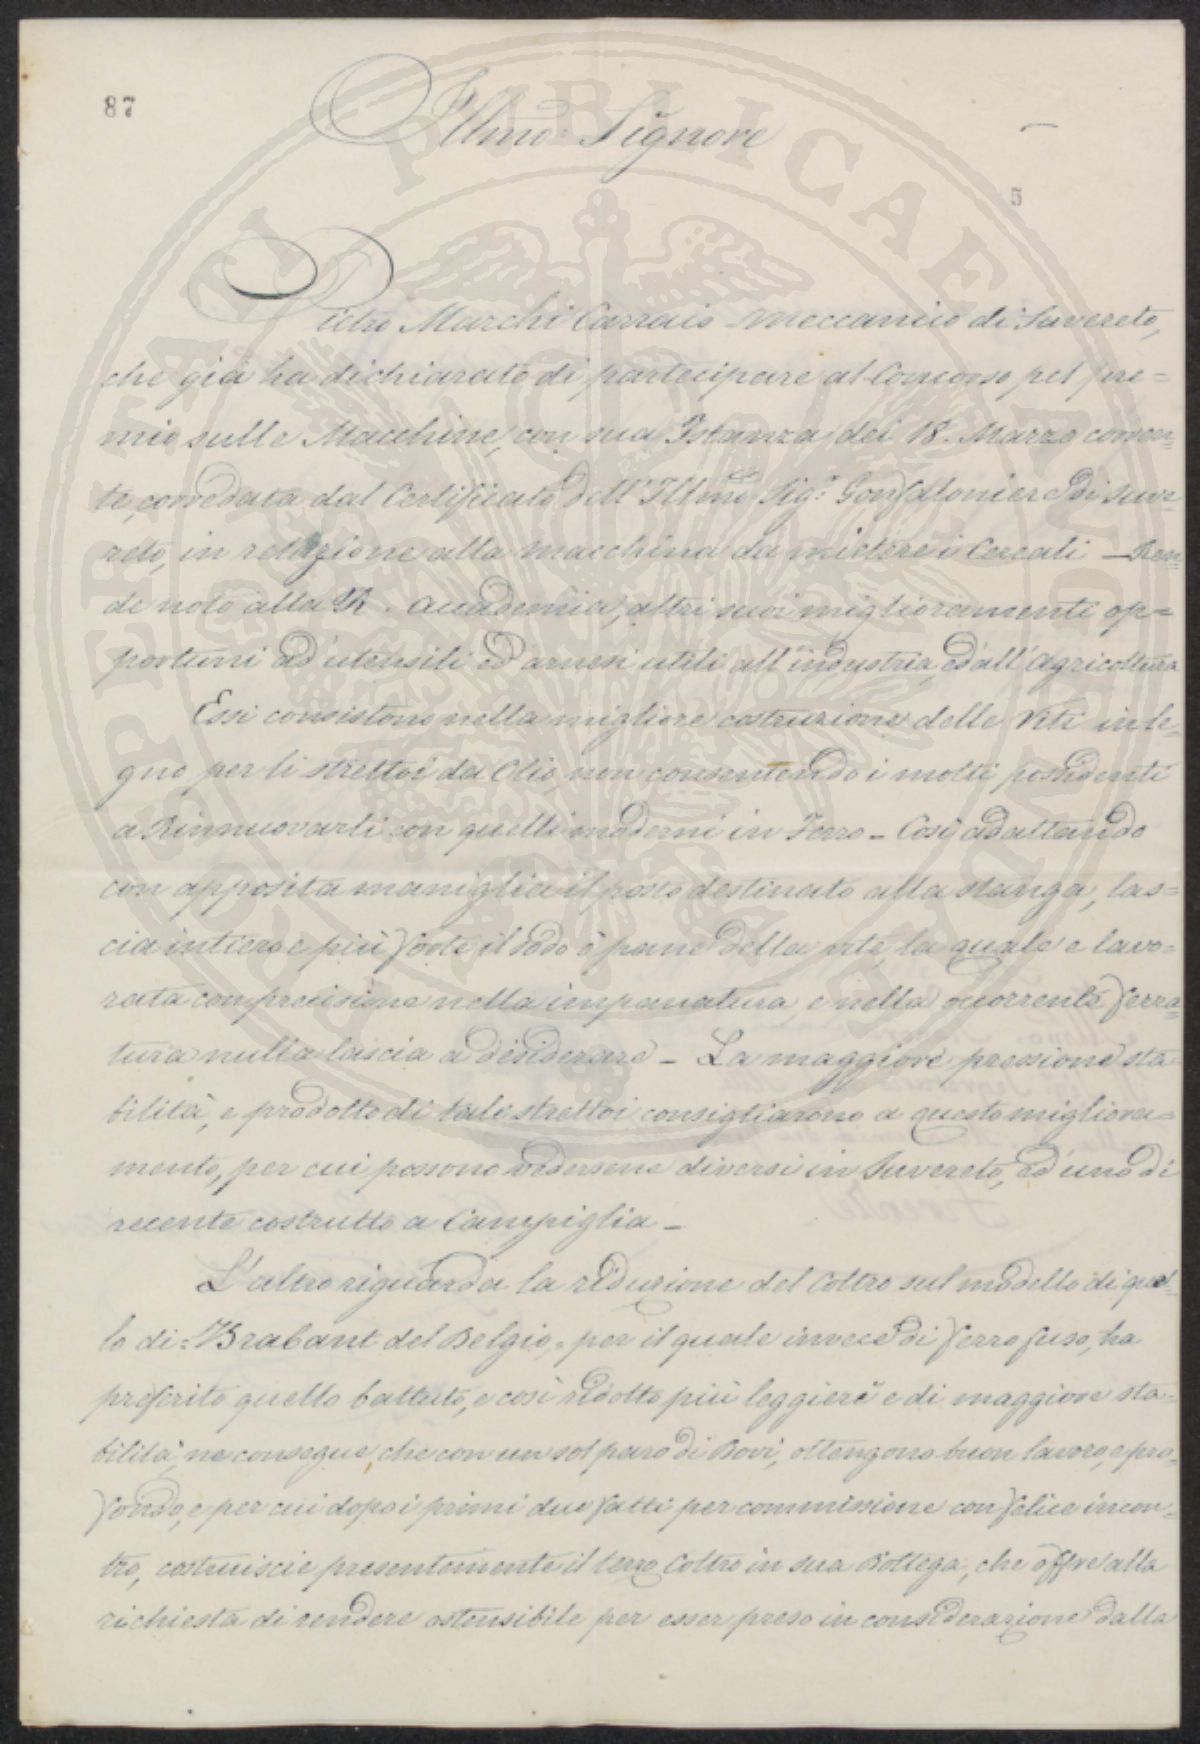 87
Illmo. Signore
5
Pietro Marchi Carraio-Meccanico di Suvereto,
che già ha dichiarato di partecipare al Concorso pel pre=
mio sulle Macchine, con sua Istanza dei 18. Marzo corren=
te, corredata dal Certificato dell'Illmo Sigr. Gonfaloniere di Suve
reto, in relazione alla Macchina da mietere i Cereali — Ren
de noto alla R. Accademia, altri suoi miglioramenti op=
portuni ad utensili ed arnesi utili all'industria, ed all'Agricoltura
Essi consistono nella migliore costruzione delle Viti in le=
gno per li strettoi da Olio, non consentendo i molti possidenti
a Rinnuovarli con quelli moderni in Ferro - Così adattando
con apposita maniglia il posto destinato alla stanga, las=
cia intiero e più forte il dodo o pane della vite, la quale e lavo=
rata con precisione nella impanatura, e nella occorrente ferra=
tura nulla lascia a desiderare - La maggiore pressione sta
bilità, e prodotto di tali strettoi consigliarono a questo migliora=
mento, per cui possono vedersene diversi in Suvereto, ed uno di
recente costrutto a Campiglia -
L'altro riguarda la reduzione del Coltro sul modello di quel=
lo di=Brabant del Belgio,= per il quale invece di ferro fuso, ha
preferito quello battuto, e così ridotto più leggiere e di maggiore sta=
bilità, ne consegue, che con un sol paro di Bovi, ottengono buon lavoro, e pro=
fondo, e per cui dopo i primi due fatti per commissione con felice incon=
tro, costruiscie presentemente il terzo Coltro in sua Bottega, che offre alla
richiesta di rendere ostensibile per esser preso in considerazione dalla